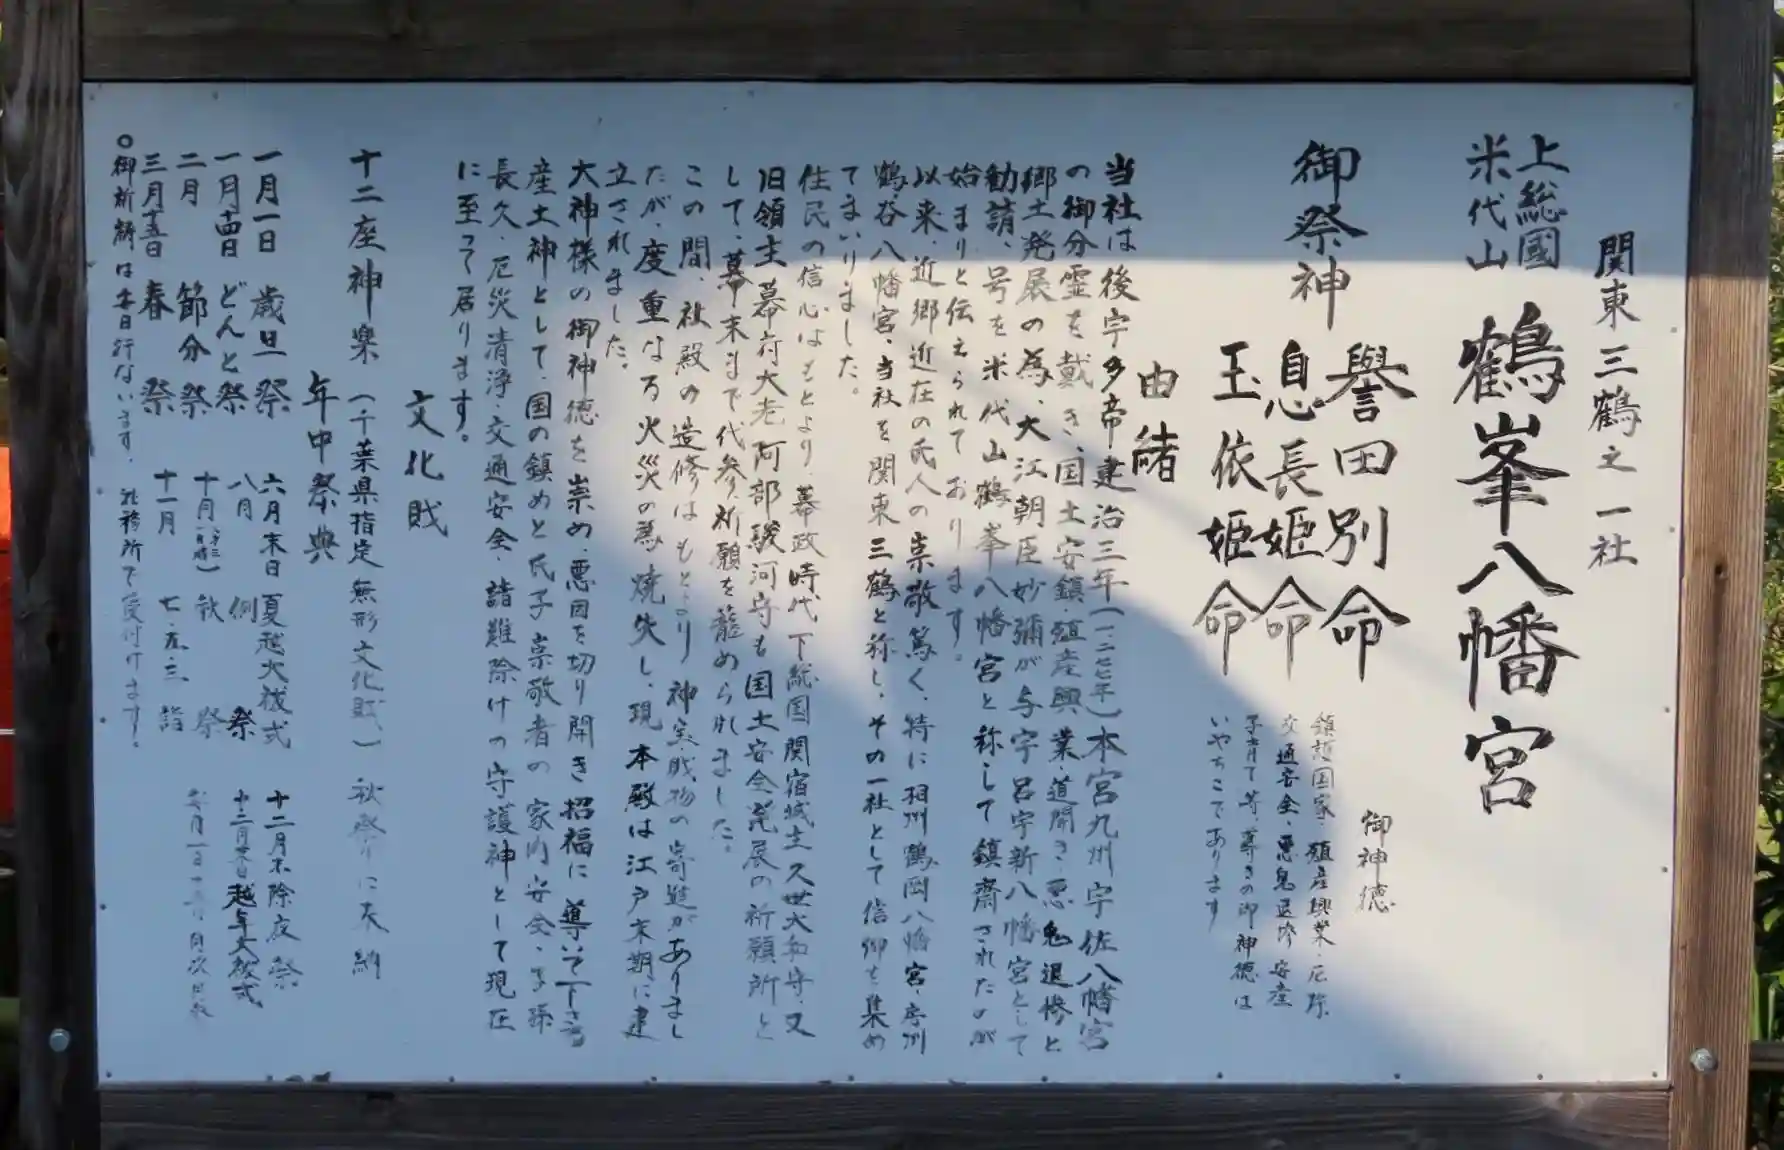 関東三鶴之一社
上総國
米代山
鶴峯八幡宮
御祭神
譽田別命
息長姫命
玉依姫命
御神徳
鎮護国家・殖産興業・厄除
交通安全・悪鬼退
安産
子育て等、尊きの御神徳は
いやちこであります
由緒
当社は後宇多帝建治三年(一二七七年)本宮九州宇佐八幡宮
の御分霊を戴き、国土安鎮・殖産興業・道開き・悪鬼退
と
郷土発展の為、大江朝臣妙彌が与宇呂宇新八幡宮として
勧請、号を米代山鶴峯八幡宮と称して鎮齋されたのが
始まりと伝えられております。
以来、近郷近在の氏人の崇敬篤く、特に相州鶴岡八幡宮・房州
鶴谷八幡宮、当社を関東三鶴と称し、その一社として信仰を集め
てまいりました。
住民の信心はもとより、幕政時代下総国関宿城主久世大和守・又
旧領主幕府大老阿部駿河守も国土安全発展の祈願所と
して、幕末まで代参祈願を籠められました。
この間、社殿の造修はもとより神宝・財物の寄進がありまし
たが、度重なる火災の為焼失し、現本殿は江戸末期に建
立されました。
大神様の御神徳を崇め、悪因を切り開き招福に導いて下さる
産土神として、国の鎮めと氏子崇敬者の家内安全・子孫
長久・厄災清浄・交通安全・諸難除けの守護神として現在
に至って居ります。
文化財
十二座神楽(千葉県指定無形文化財)秋祭りに奉納
年中祭典
一月一日 歳旦祭
一月十四日 どんと祭
二月 節分祭
三月十五日 春祭
六月末日 夏越大祓式
八月 例祭
十月 秋祭
十一月 七・五・三詣
十二月末 除夜祭
十二月末日 越年大祓式
毎月一日十五日 月次日供
○御祈祷は毎日行ないます。社務所で受付けます。